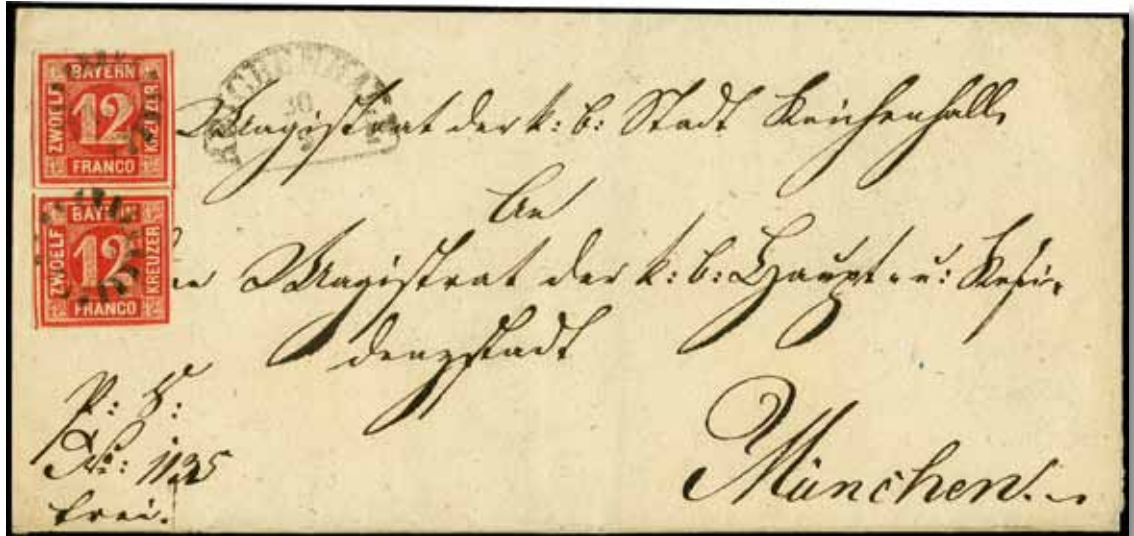 BAYERN
ZWOELF 12 KREUZER
FRANCO
BAYERN
ZWOELF 12 KREUZER
FRANCO
REICHENHALL
30
Magistrat der k: b: Stadt Reichenhall
An
Magistrat der k: b: Haupt- u: Resi-
denzstadt
München.
P: S:
No: 1125
frei.